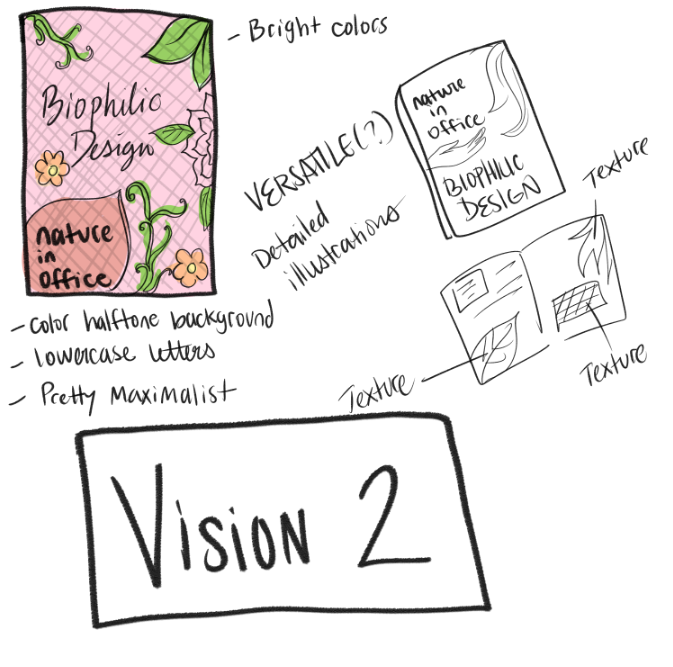 Biophilic
Design
nature
in
office
- Bright colors
- color halftone background
- lowercase letters
- Pretty Maximalist
VERSATILE(?)
Detailed
illustrations
nature
in
office
BIOPHILIC
DESIGN
Texture
Texture
Texture
Vision 2